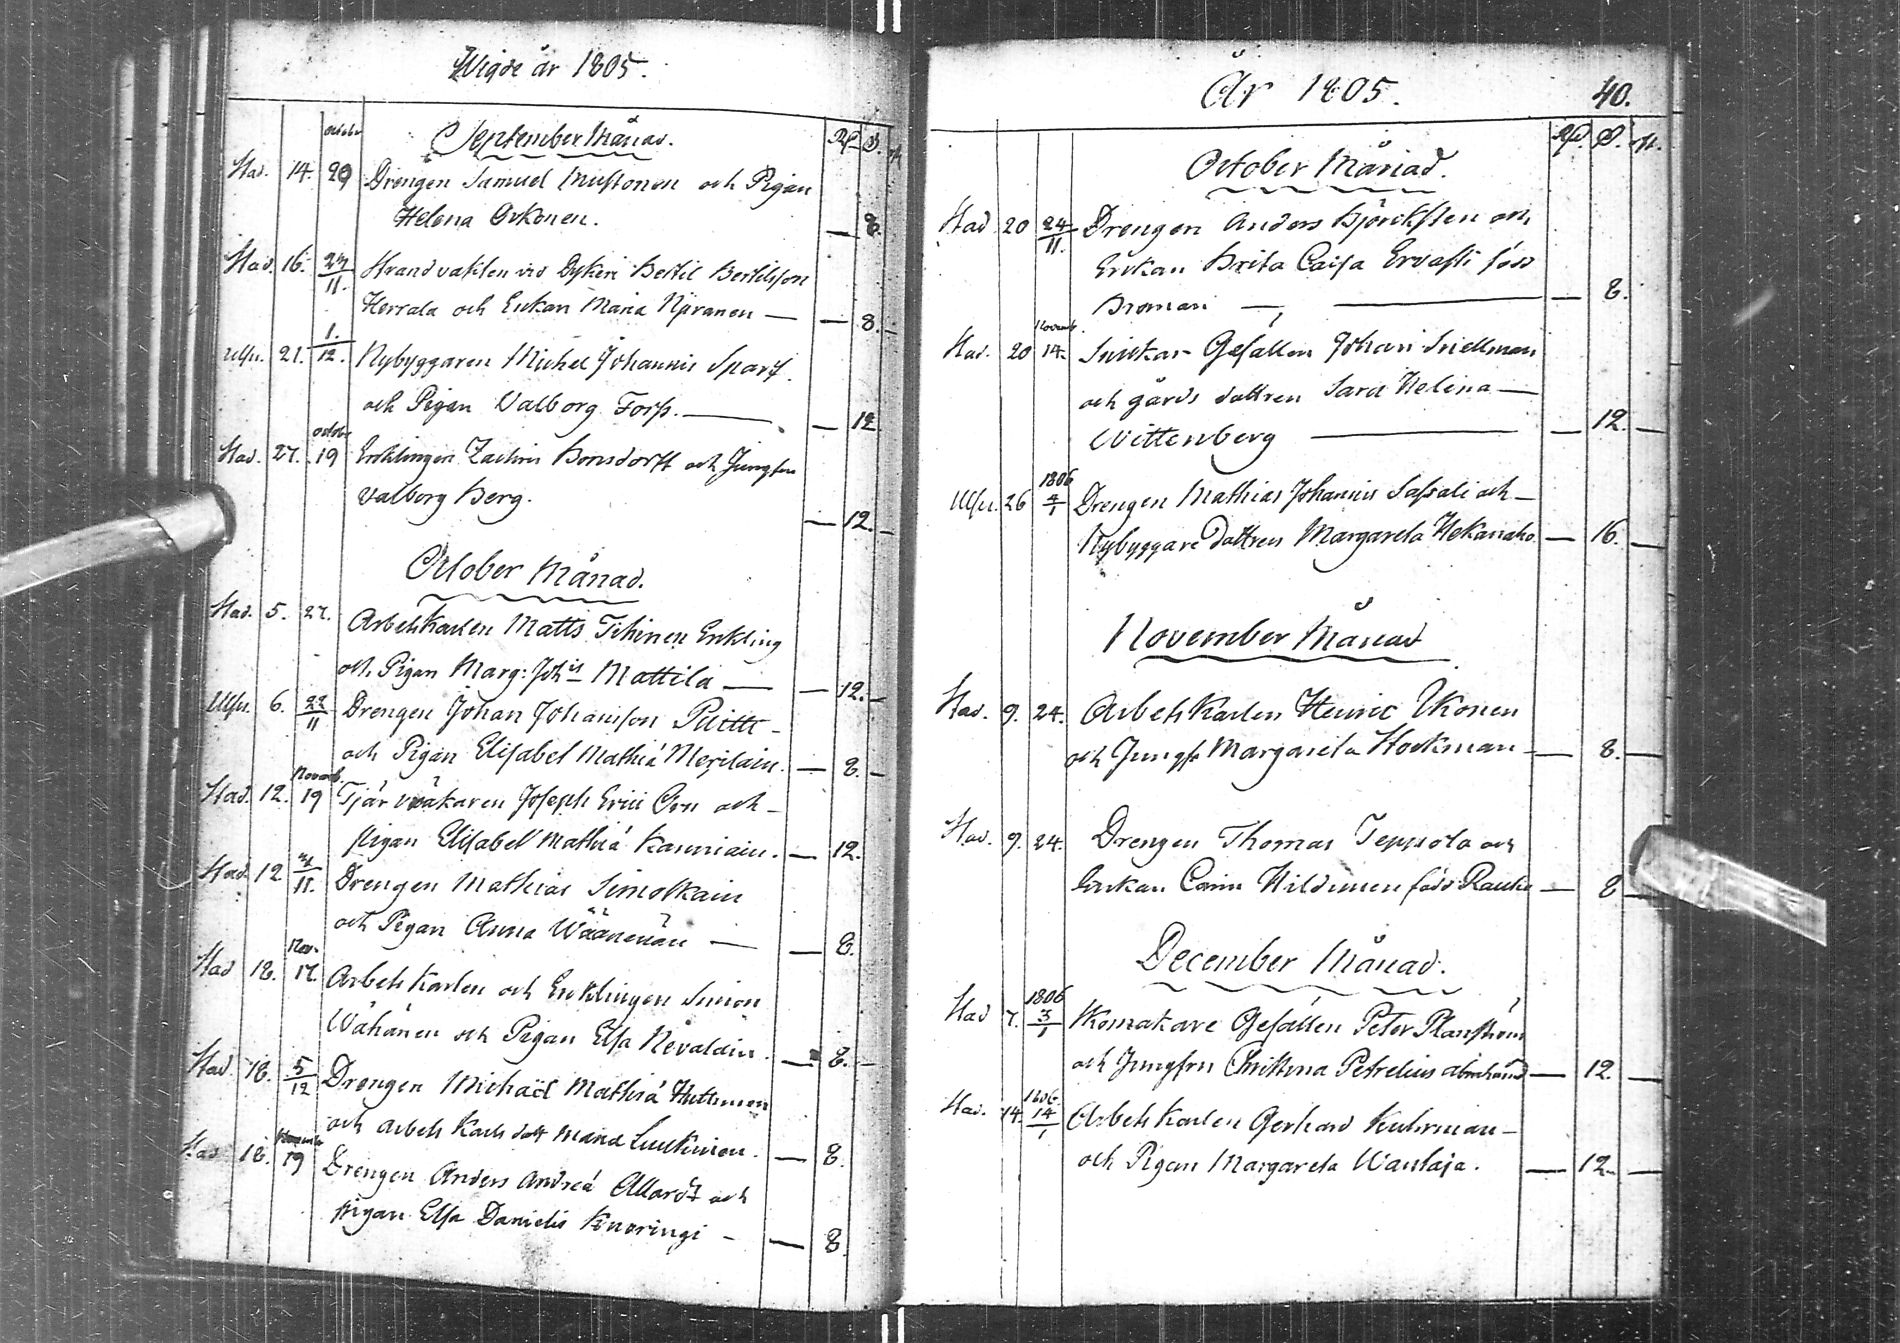 Wigde år 1805.
October September Månad. Rd. S. rst.
Stad. 14. 29 Drengen Samuel Mustonen och Pigan
Helena Orkonen. — 8.
Stad. 16. 27/11. Strandvakten vid Dykeri Bertil Bertilsson
Herrala och Enkan Maria Njiranen — — 8. —
Ulfu. 21. 1./12. Nybyggaren Michel Johannis Sparf
och Pigan Valborg Forss. — — 12
Stad. 27. octobr 19 Enklingen Zachris Bonsdorff och Jungfru
Valborg Berg. — 12. —
October Månad.
Stad. 5. 27. Arbets Karlen Matts Tihinen Enkling
och Pigan Marg: Joh:is Mattila — — 12. —
Ulfu. 6. 22/11 Drengen Johan Johansson
och Pigan Elisabet Mathiæ Merilain. — 8. —
Stad. 12. Novemb. 19 Tjär vräkaren Joseph Erici Orn och —
pigan Elisabet Mathiæ Kanniain. — 12.
Stad. 12 /11. Drengen Mathias Simolkain
och Pigan Anna Wäänenän — — 8.
Stad 18. Nov. 17. Arbets Karlen och Enklingen Simon
Wähänen och Pigan Elsa Nevalain. — 8. —
Stad. 18. 5/12 Drengen Michaël Mathiæ Huttunen
och Arbets Karls dott Maria Luukinen. — 8.
Stad 18. 19 Drengen Anders Andreæ Allardt och
pigan Elsa Danielis Knoringi — — 8.
År 1805. 40.
Rd. S. rst.
October Månad.
Stad 20 24/11. Drengen Anders Björksten och
Enkan Brita Caisa Ervasti född
Broman — — — 8.
Stad. 20 Novemb. 14. Snickar Gesällen Johan Snellman
och gårds dottren Sara Helena —
Wittenberg — — 12. —
Ulfu. 26 1806 4/1 Drengen Mathias Johannis Sassali och —
Nybyggare Dottren Margareta Hekanaho — 16. —
November Månad
Stad. 9. 24. Arbets Karlen Henric Ikonen
och Jungfr Margareta Hockman — — 8. —
Stad. 9. 24. Drengen Thomas Teppola och
Enkan Carin Hildunen född — 8 —
December Månad.
Stad 7. 1806 3/1 Skomakare Gesällen Peter Planström
och Jungfru Christina Petrelius — 12. —
Stad. 14. 1806. 14/1 Arbets Karlen Gerhard Kuhrman —
och Pigan Margareta Wanlaja. — 12. —